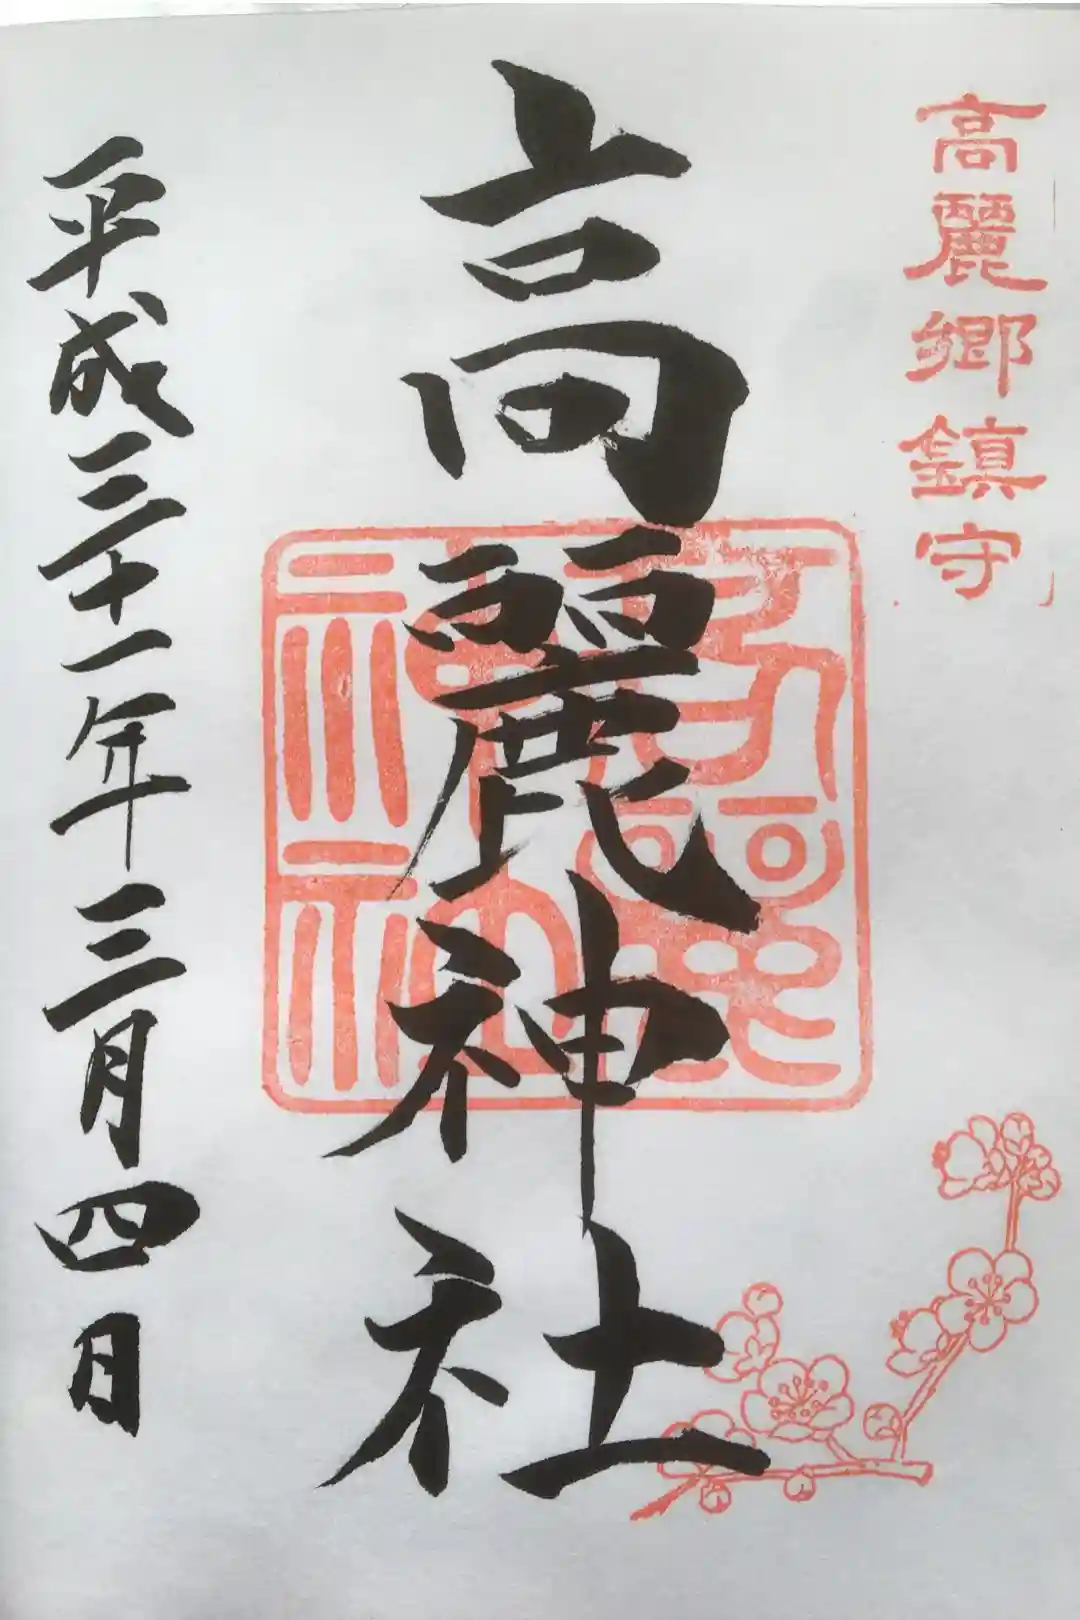 高麗郷鎮守
高麗神社
高麗神社
平成三十一年三月四日